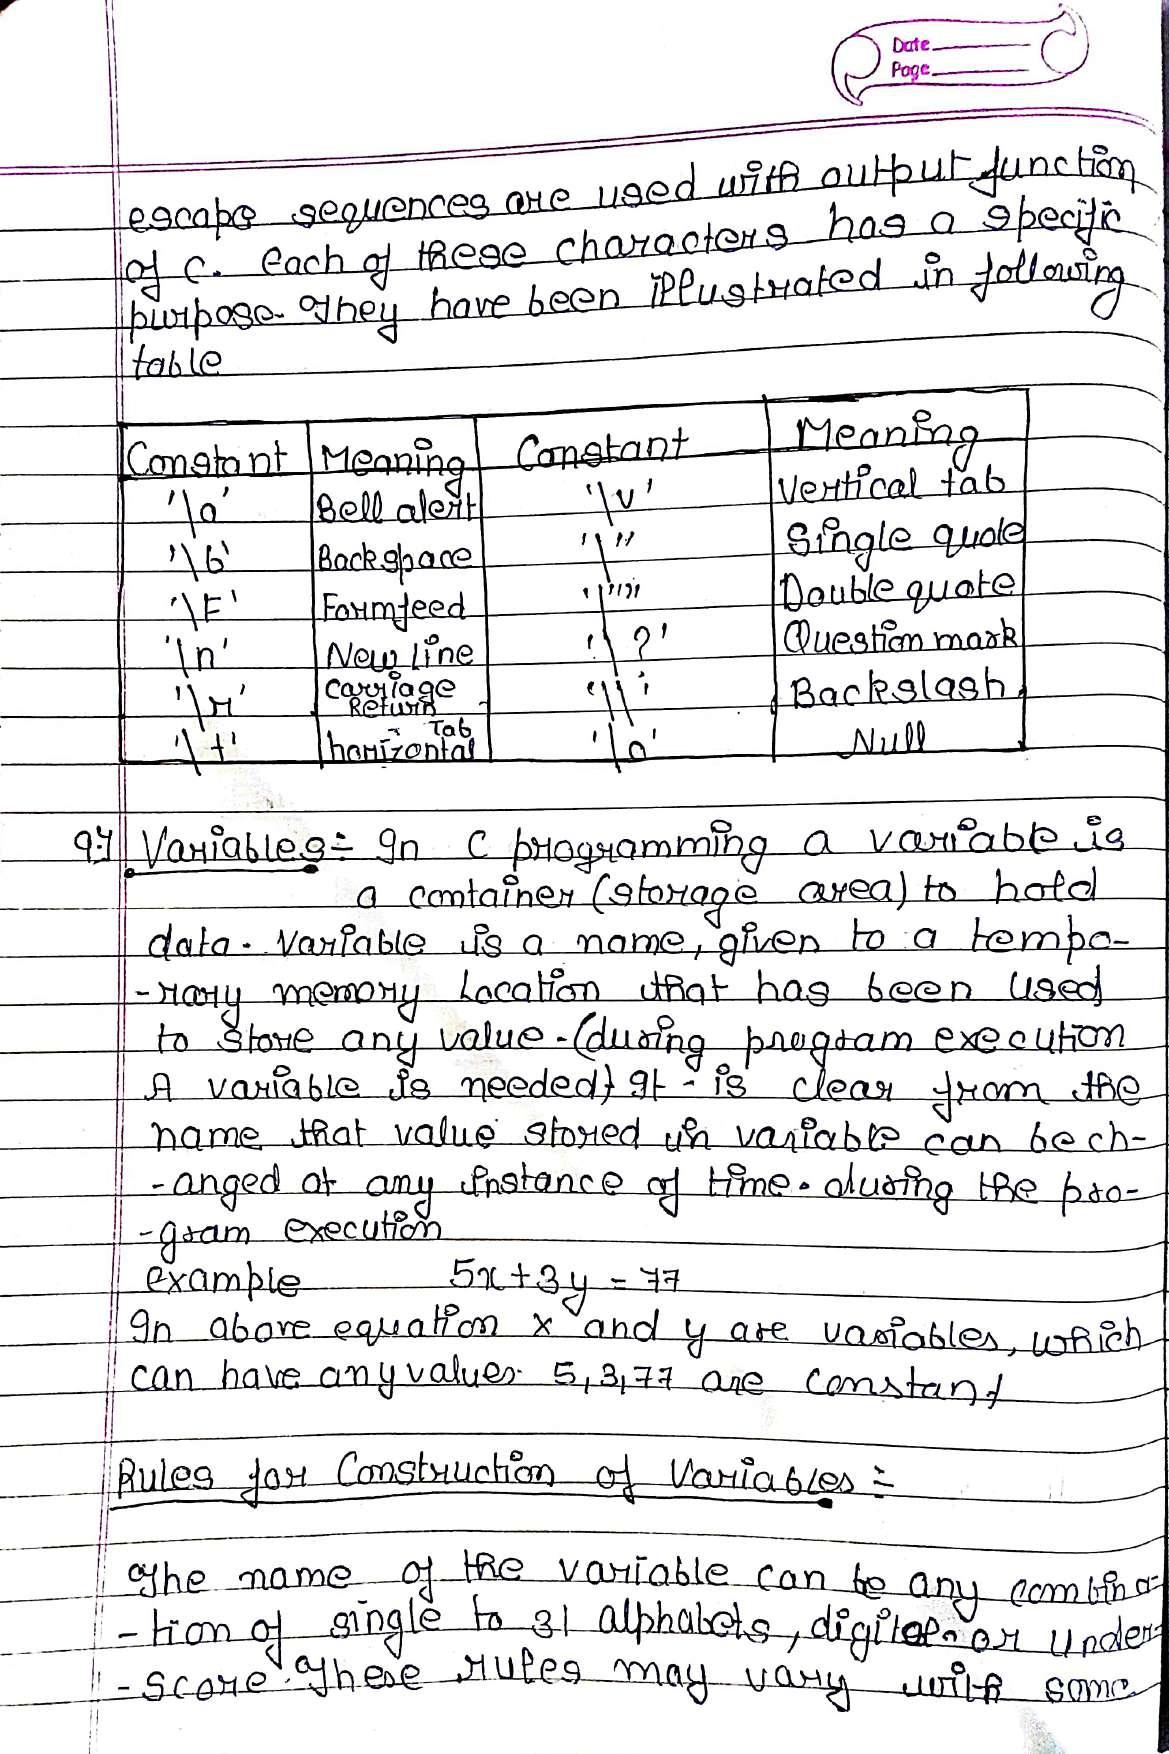 Date
Page
escape sequences are used with output function
of C. Each of these characters has a specific
purpose. They have been illustrated in following
table
Constant Meaning Constant Meaning
'\a' Bell alert '\v' Vertical tab
'\b' Backspace '\'' Single quote
'\F' Formfeed '\"' Double quote
'\n' New line '\?' Question mark
'\r' Carriage Return '\\' Backslash
'\t' horizontal Tab '\0' Null
Variables:- In C programming a variable is
a container (storage area) to hold
data. Variable is a name, given to a tempo-
-rary memory location that has been used
to store any value. (during program execution
A variable is needed) It - is clear from the
name that value stored in variable can be ch-
-anged at any instance of time. during the pro-
-gram execution
example 5x+3y=77
In above equation x and y are variables, which
can have any values. 5,3,77 are constant
Rules for Construction of Variables:-
The name of the variable can be any combina-
-tion of single to 31 alphabets, or under-
-score. These rules may vary with some